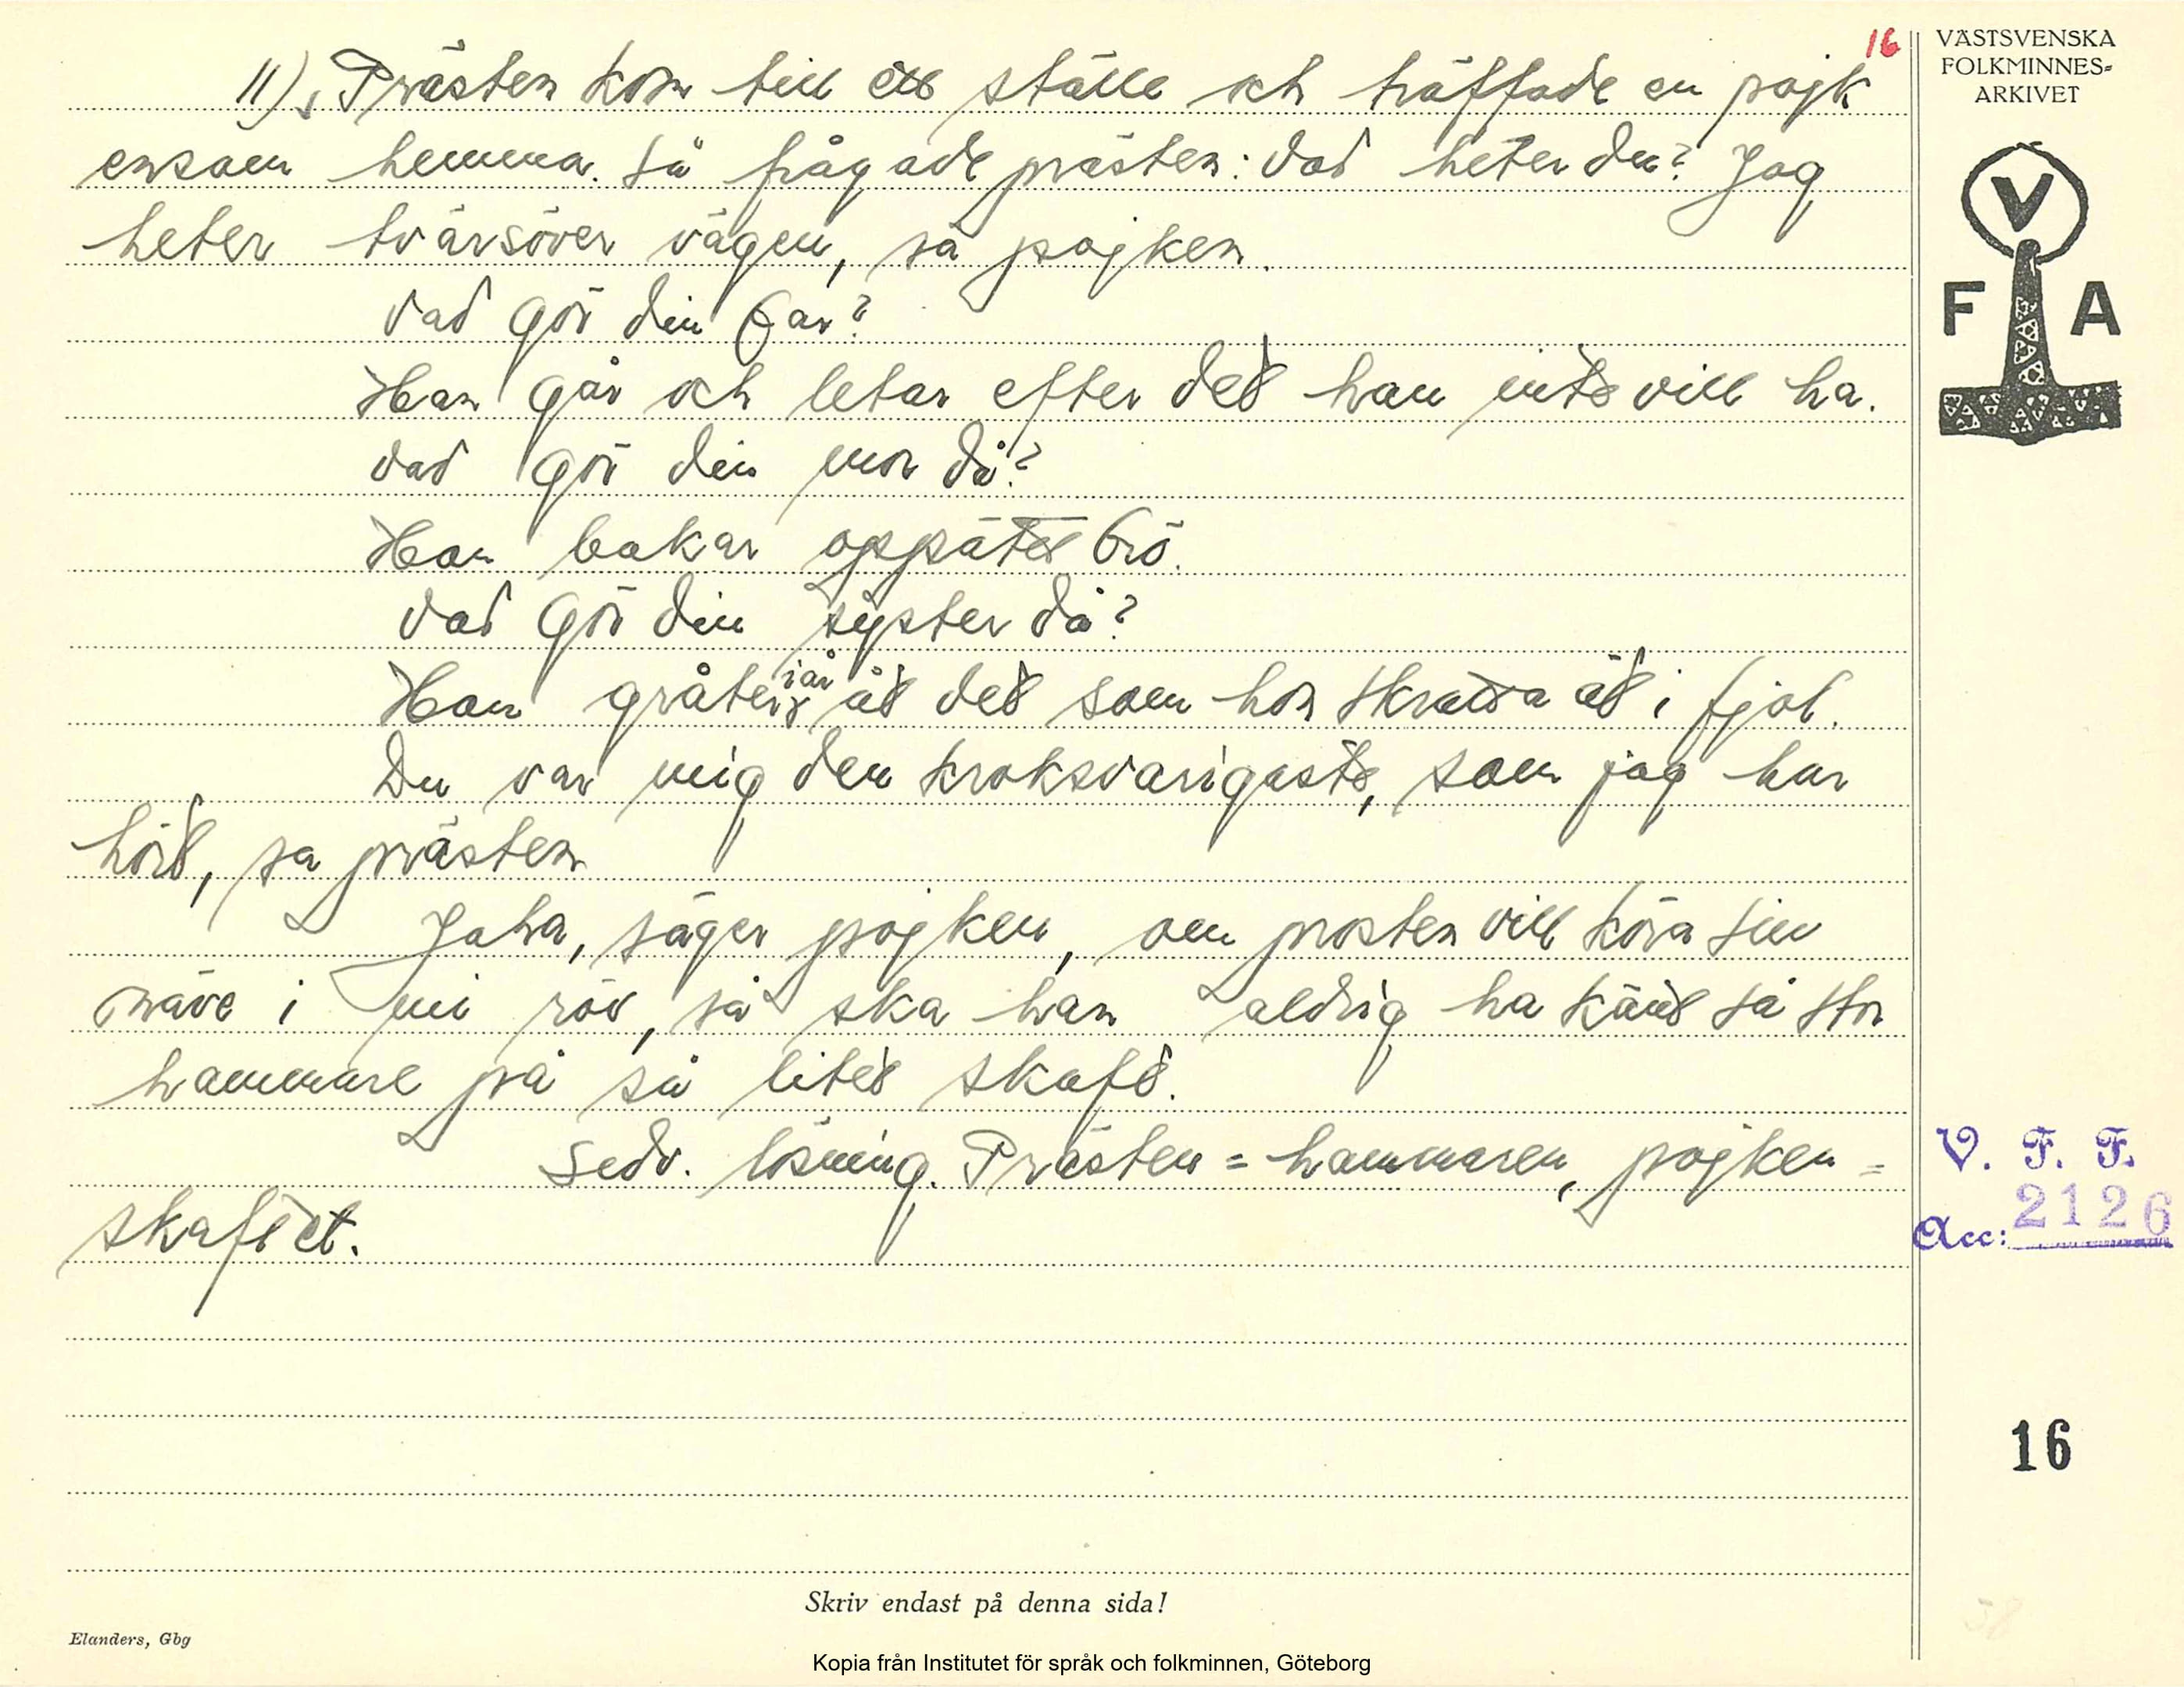 16
11). Prästen kom till ett ställe och träffade en pojk
ensam hemma. Så frågade prästen: Vad heter du? Jag
heter tvärsöver vägen, sa pojken.
Vad gör din far?
Han går och letar efter det han inte vill ha.
Vad gör din mor då?
Hon bakar oppätet brö.
Vad gör din syster då?
Hon gråter i år åt det som hon skratta åt i fjol.
Du var mig den kroksvarigaste, som jag har
hört, sa prästen
Jaha, säger pojken, om prosten vill köra sin
näve i mi röv, så ska han aldrig ha känt så stor
hammare på så litet skaft.
Sedv. lösning. Prästen = hammaren, pojken =
skaftet.
VÄSTSVENSKA
FOLKMINNES-
ARKIVET
V
F A
V. F. F.
Acc: 2126
16
Skriv endast på denna sida!
Elanders, Gbg
Kopia från Institutet för språk och folkminnen, Göteborg